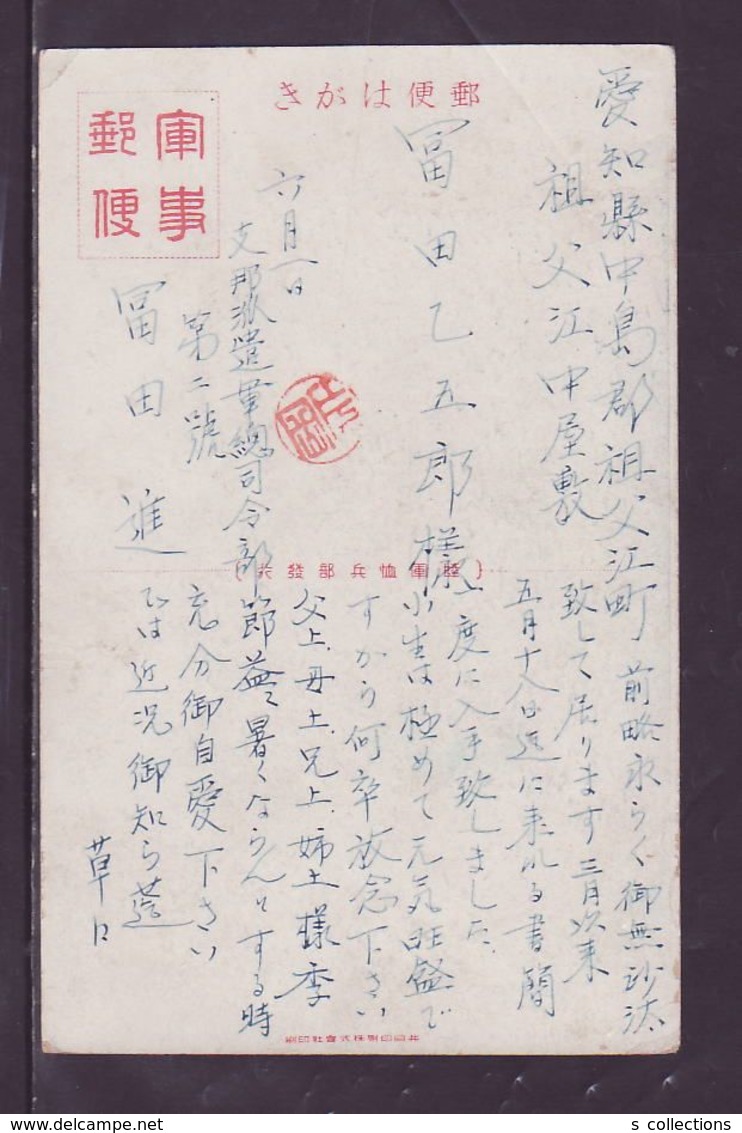 郵便はがき
軍事
郵便
愛知縣中島郡祖父江町
祖父江中屋敷
冨田乙五郎様
六月一日
支那派遣軍總司令部
第二號
冨田進
陸軍恤兵部發
前略永らく御無沙汰
致して居ります三月以来
五月十八日迄に来れる書簡
一度に入手致しました
小生は極めて元気旺盛で
すから何卒放念下さい
父上、母上、兄上、姉上様季
節益々暑くならんとする時
充分御自愛下さい
では近況御知ら迄
草々
共同印刷株式會社印刷
s collections